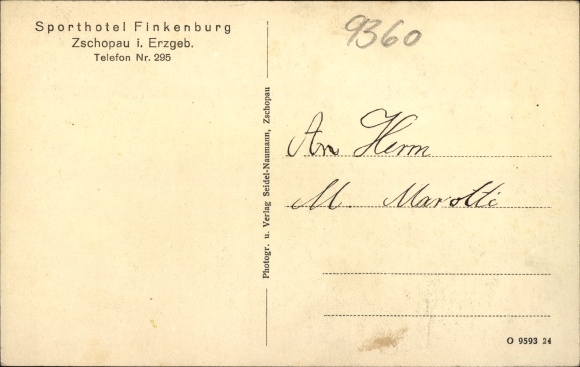 Sporthotel Finkenburg
Zschopau i. Erzgeb.
Telefon Nr. 295
9360
Photogr. u. Verlag Seidel-Naumann, Zschopau
An Herrn
M. Marotti
O 9593 24